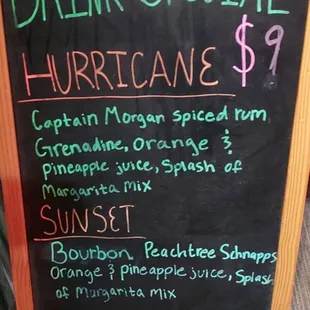 DRINK SPECIAL
HURRICANE $9
Captain Morgan spiced rum
Grenadine, Orange &
pineapple juice, Splash of
Margarita mix
SUNSET
Bourbon Peachtree Schnapps
Orange & pineapple juice, Splash
of Margarita mix